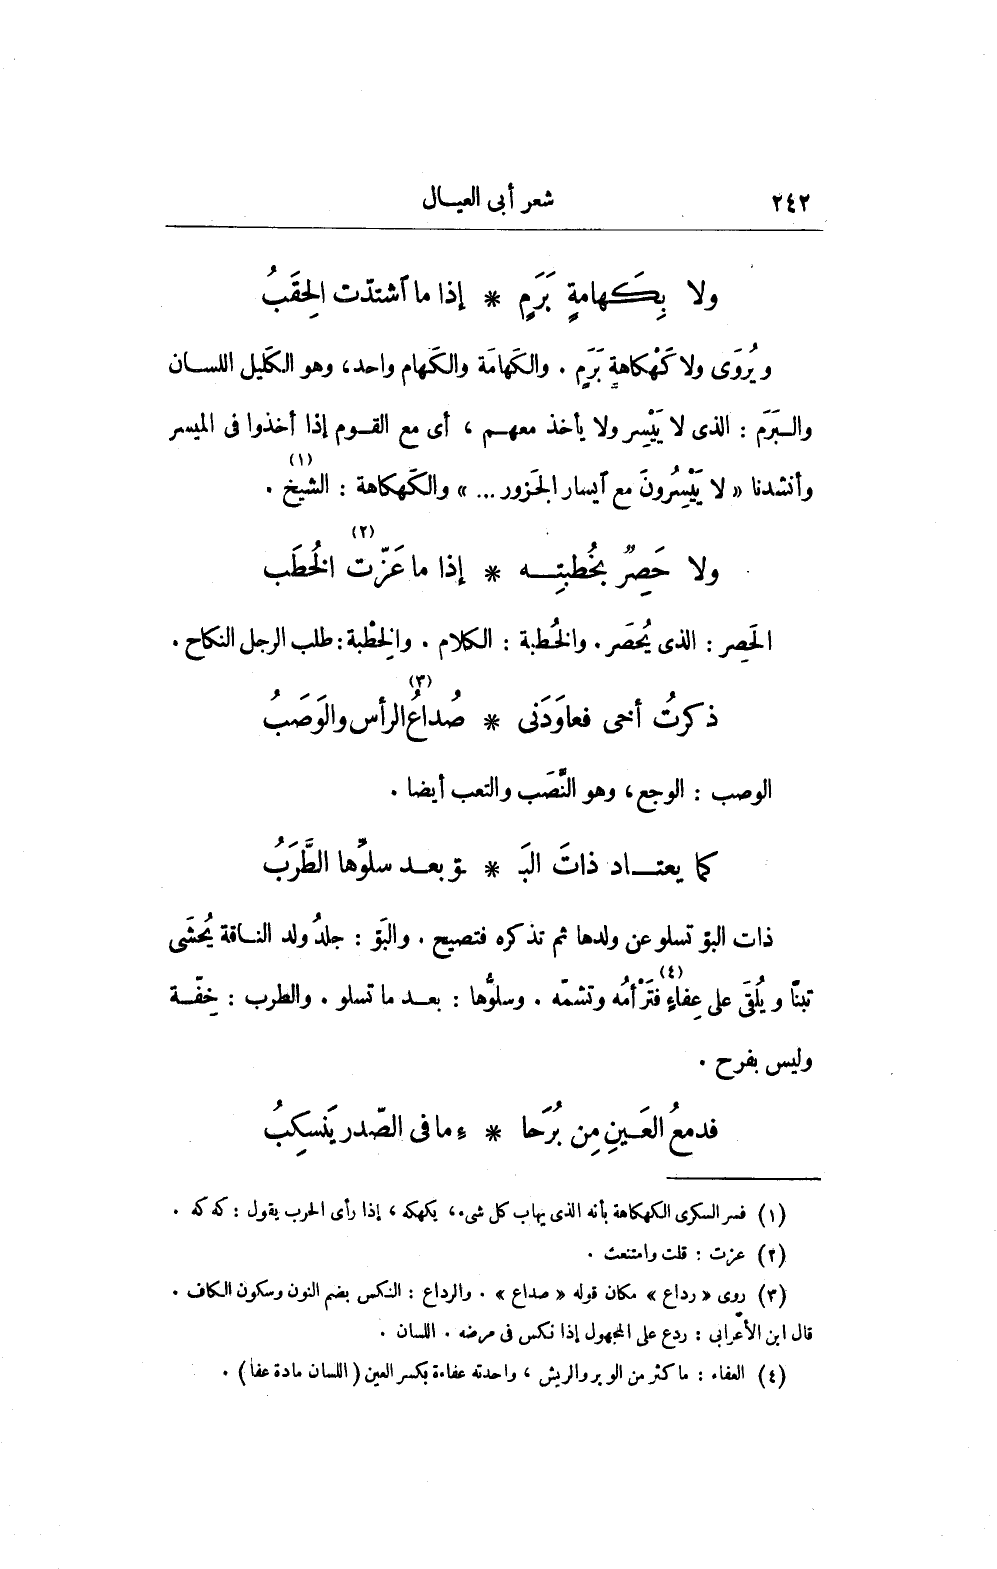 ٢٤٢ شعر أبى العيـال
ولا بِكَهامةٍ بَرَمٍ * إذا ما ٱشتدّت الحِقَبُ
ويُروَى ولا كَهْكاهةٍ بَرَم . والكَهامَة والكَهام واحد، وهو الكَليل اللسـان
والـبَرَم : الذى لا يَيْسِر ولا يأخذ معهـم ، أى مع القـوم إذا أخذوا فى الميسر
وأنشدنا « لا يَيْسِرُونَ مع آيسار الجَزور ... » والكَهكاهة : الشيخ (١) .
ولا حَصِرٌ بخُطبتِـــه * إذا ما عَزّت (٢) الخُطَب
الحَصِر : الذى يُحصَر . والخُطبة : الكلام . والخِطْبة : طلب الرجل النكاح .
ذكرتُ أخى فعاوَدَنى * صُداعُ (٣) الرأس والوَصَبُ
الوصب : الوجع، وهو النَّصَب والتعب أيضا .
كما يعتـــاد ذاتَ البَـ * ـوّ بعـد سلوّها الطَّرَبُ
ذات البوّ تسلو عن ولدها ثم تذكره فتصيح . والبَوّ : جلدُ ولد النـاقة يُحشَى
تبنًا ويُلقَى على عِفاءٍ (٤) فتَرْأمُه وتشمّه . وسلوُّها : بعـد ما تسلو . والطرب : خِفّـة
وليس بفرح .
فدمعُ العَـينِ مِن بُرَحا * ءِ ما فى الصّدر يَنسكِبُ
(١) فسر السكرى الكهكاهة بأنه الذى يهاب كل شىء، يكهكه ، إذا رأى الحرب يقول : كه كه .
(٢) عزت : قلت وامتنعت .
(٣) روى « رداع » مكان قوله « صداع » . والرداع : النكس بضم النون وسكون الكاف .
قال ابن الأعرابى : ردع على المجهول إذا نكس فى مرضه . اللسان .
(٤) العفاء : ما كثر من الوبر والريش ، واحدته عفاءة بكسر العين ( اللسان مادة عفا ) .